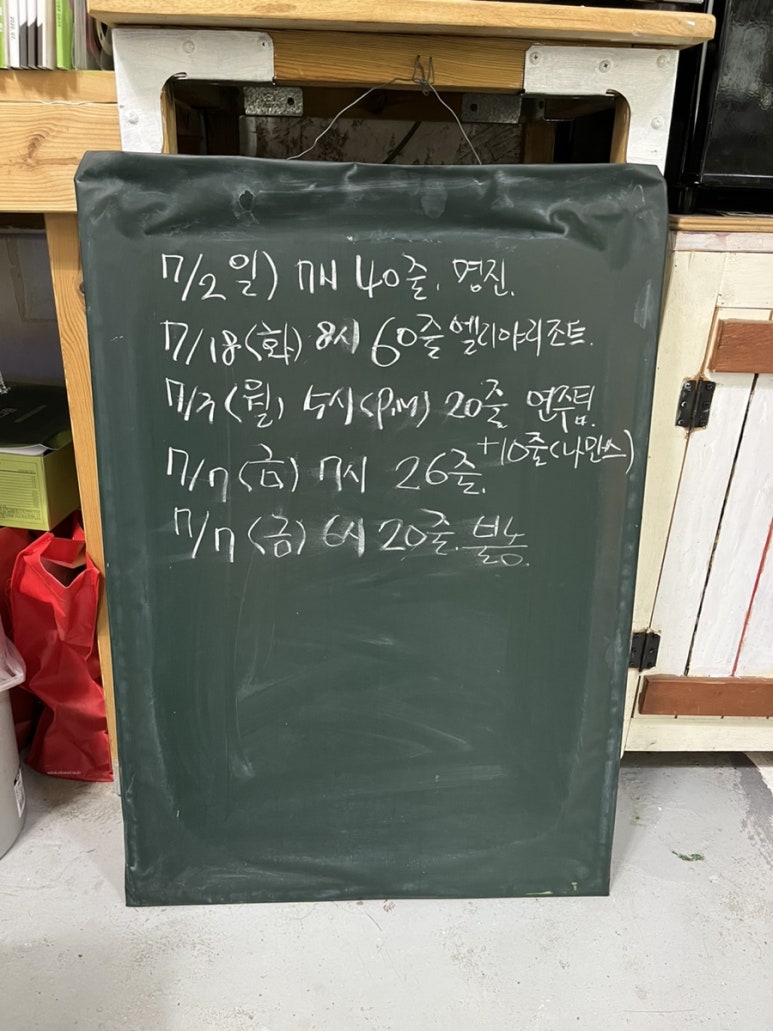 7/2 일) 7시 40줄. 명진.
7/18(화) 8시 60줄 엘리야리조트.
7/3(월) 5시(P.M) 20줄 연주팀.
+10줄(나만쓰)
7/7(금) 7시 26줄.
7/7(금) 6시 20줄. 불농.